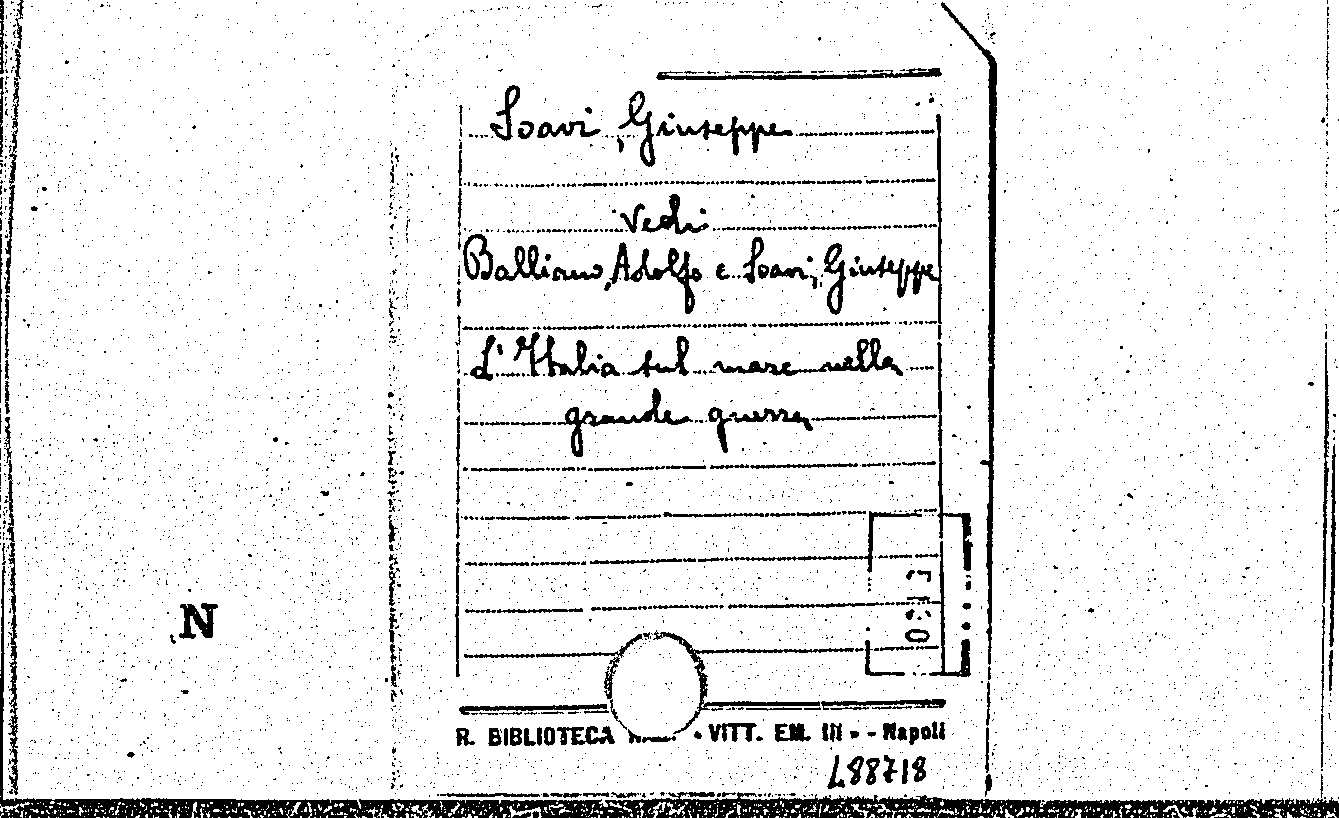 Soavi, Giuseppe
Vedi
Balliano, Adolfo e Soavi, Giuseppe
L'Italia sul mare nella
grande guerra
N
R. BIBLIOTECA • VITT. EM. III • - Napoli
L88718